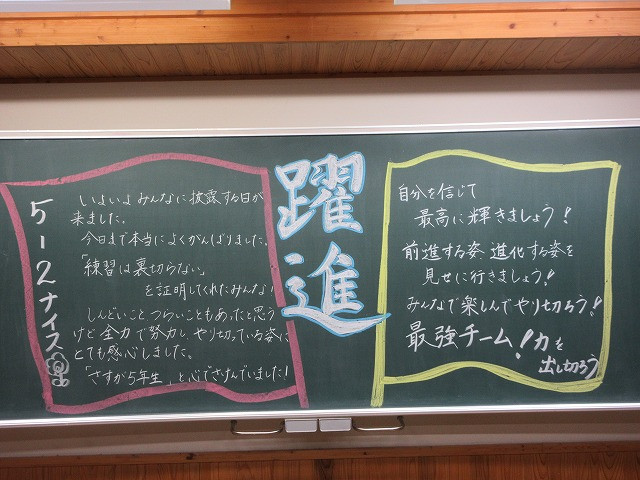 5-2ナイス
いよいよみんなに披露する日が
来ました。
今日まで本当によくがんばりました。
「練習は裏切らない」
を証明してくれたみんな!
しんどいこと、つらいこともあったと思う
けど全力で努力し、やり切っている姿に
とても感心しました。
「さすが5年生」と心でさけんでいました!
躍進
自分を信じて
最高に輝きましょう!
前進する姿 進化する姿を
見せに行きましょう!
みんなで楽しんでやり切ろう!
最強チーム!力を
出し切ろう